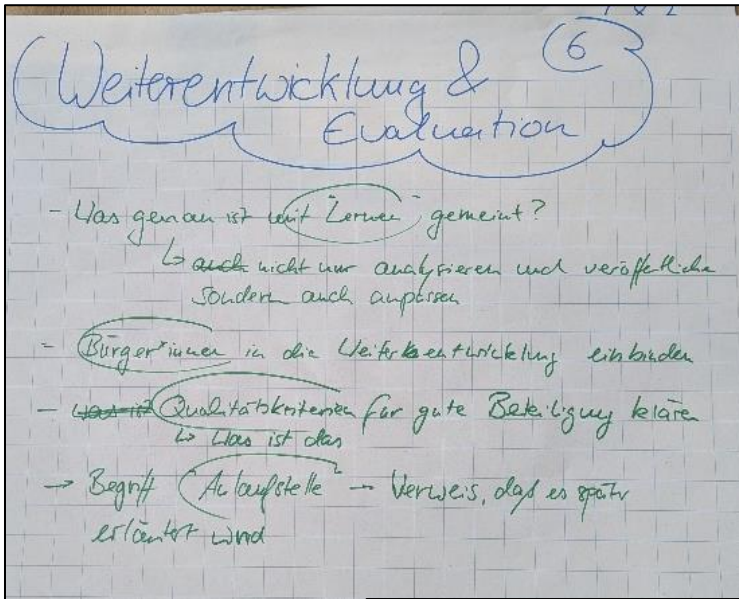 6
Weiterentwicklung &
Evaluation
- Was genau ist mit "Lernen" gemeint?
↳ auch nicht nur analysieren und veröffentliche
sondern auch anpassen
- Bürger*innen in die Weiterentwicklung einbinden
- was ist Qualitätskriterien für gute Beteiligung klären
↳ Was ist das
→ Begriff "Anlaufstelle" - Verweis, daß es später
erläutert wird